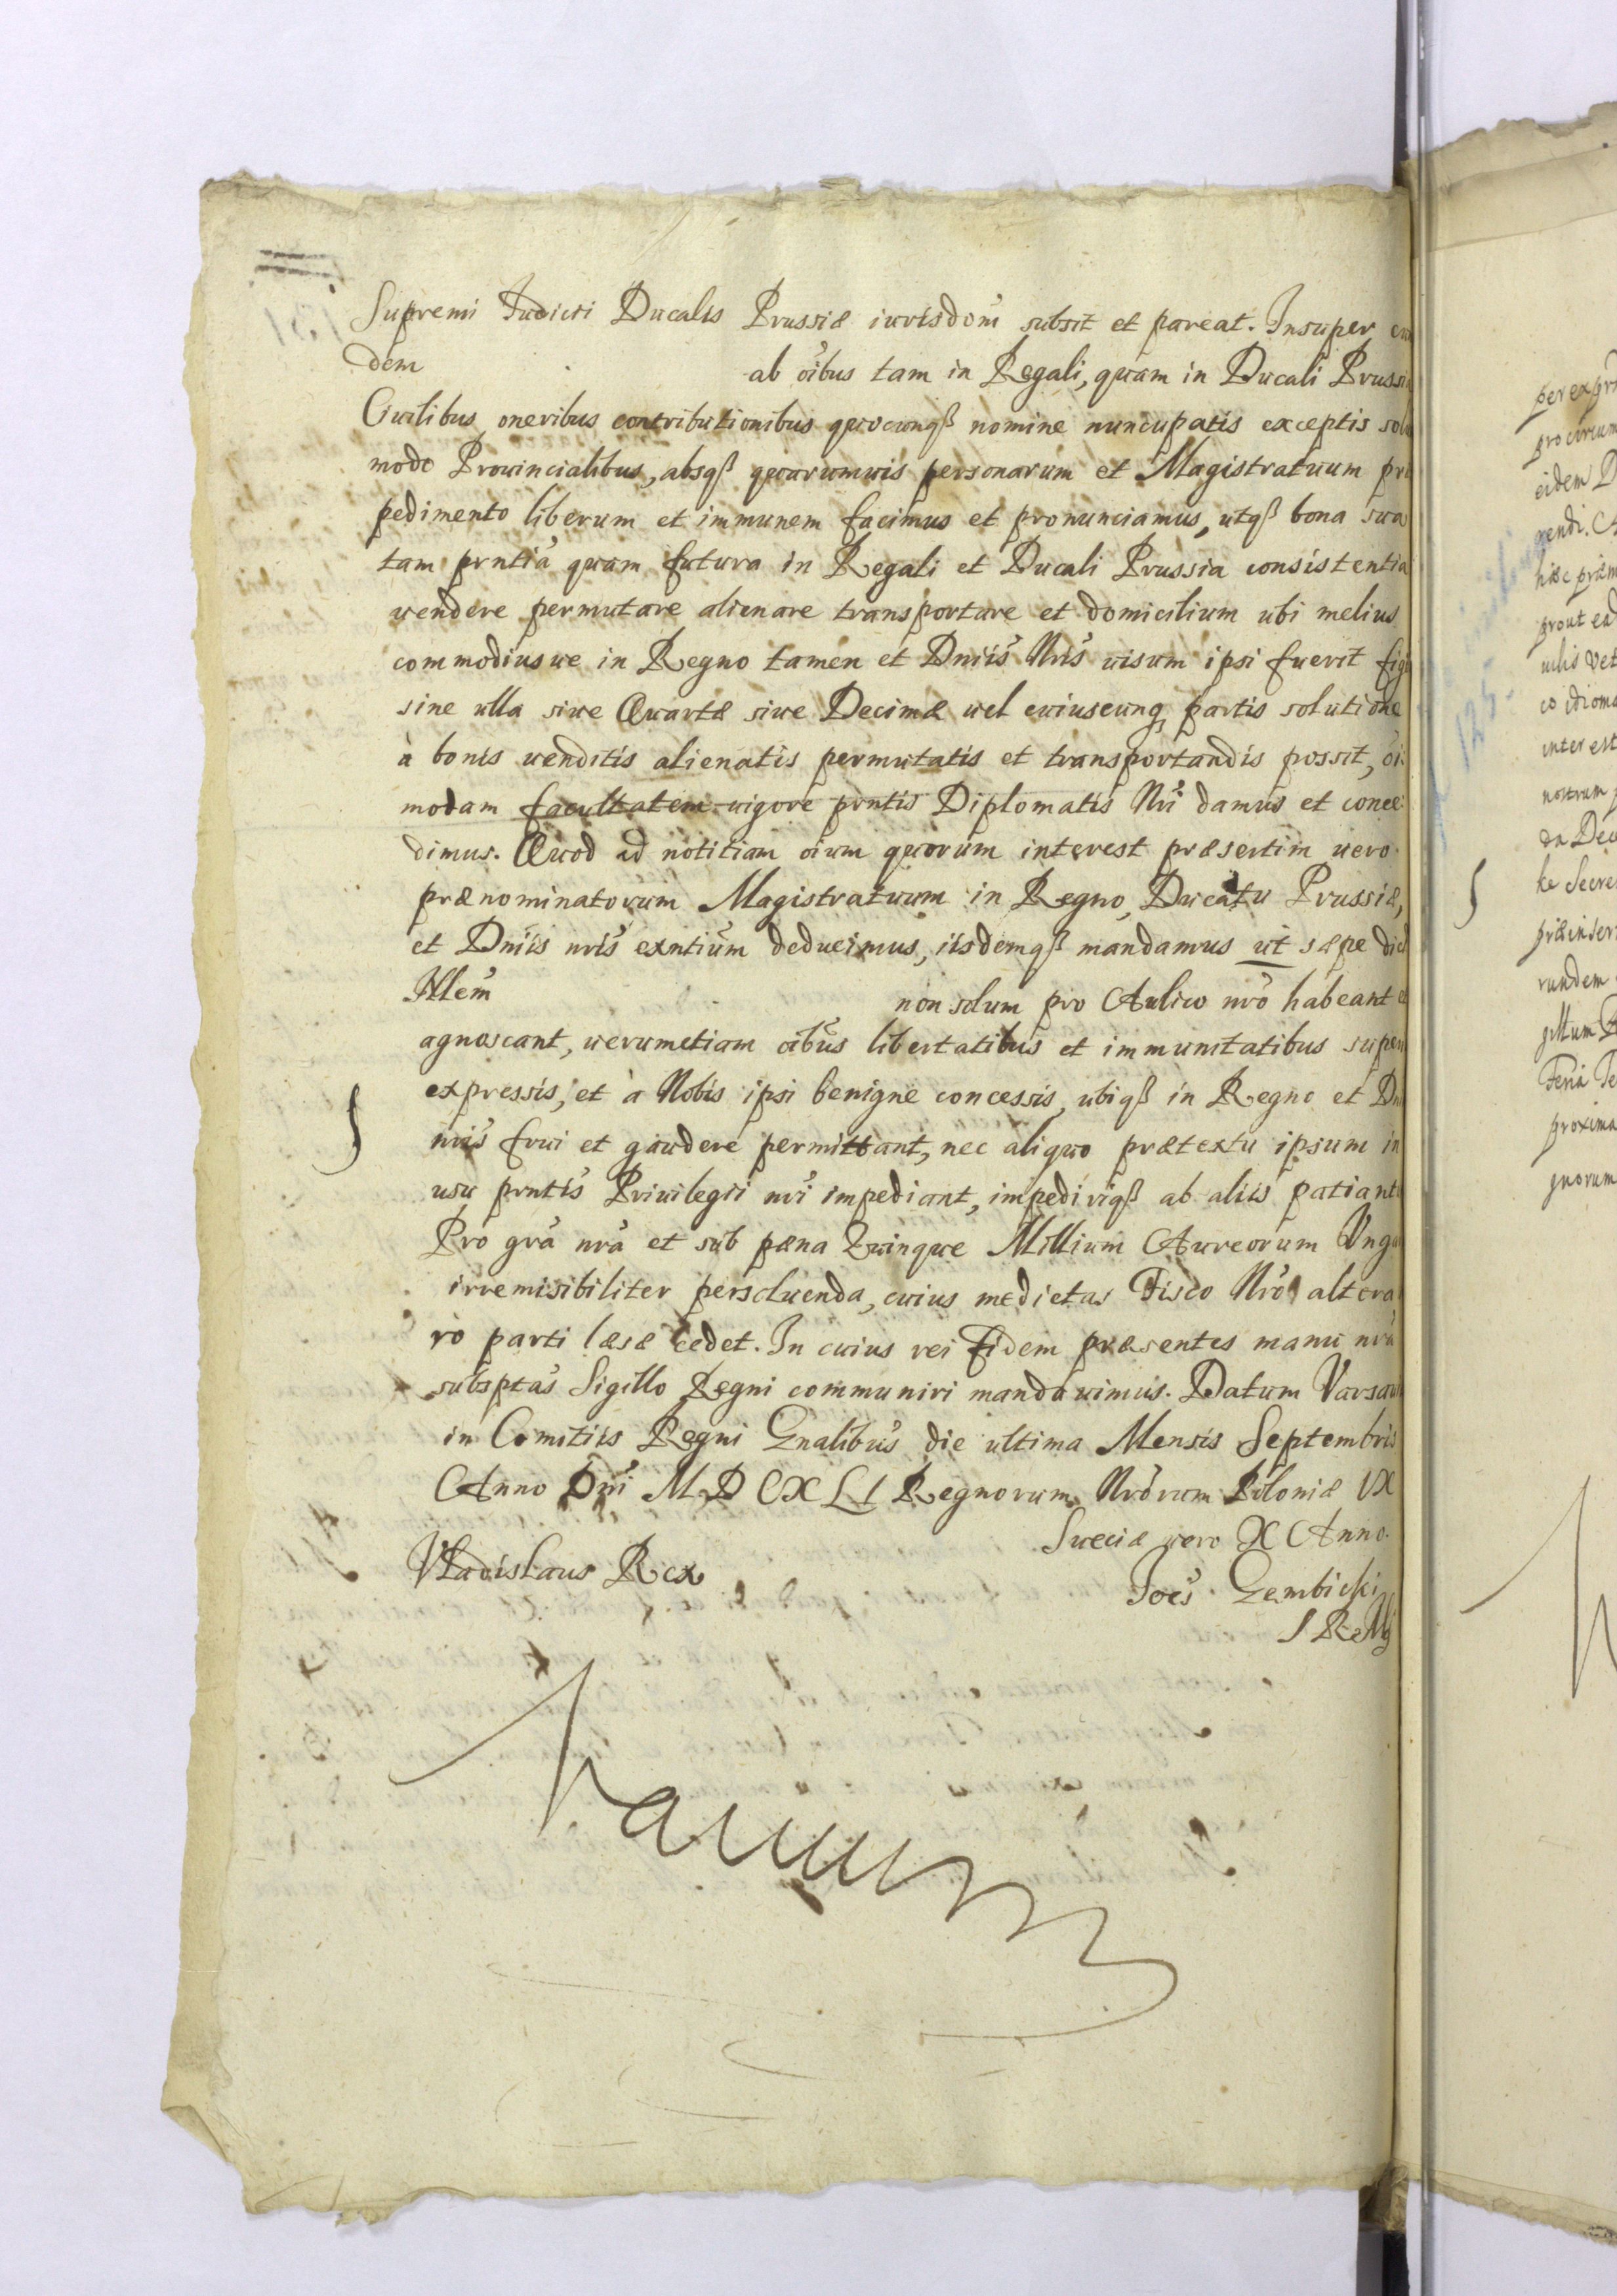 Supremi Judicii Ducalis Prussiæ iurisdom̃ subsit et pareat. Insuper eun
dem ab oĩbus tam in Regali, quam in Ducali Prussia
Ciuilibus oneribus contributionibus quocunqꝫ nomine nuncupatis exceptis solu
modo Prouincialibus, absqꝫ quarumuis personarum et Magistratuum præ
pedimento liberum et immunem facimus et pronunciamus, utqꝫ bona sua
tam prntia᷃ quam futura in Regali et Ducali Prussia consistentia
vendere permutare alienare transportare et domicilium ubi melius
commodiusue in Regno tamen et Dniis̃ Nris̃ uisum ipsi fuerit figi
sine ulla siue Quartæ siue Decimæ uel cuiuscunq, partis solutione
à bonis uenditis alienatis permutatis et transportandis possit, oi:
modam facultatem uigore prntis̃ Diplomatis Nri᷃ damus et conce:
dimus. Quod ad notitiam oium quorum interest præsertim uero
prænominatorum Magistratuum in Regno, Ducatu Prussiæ,
et Dniis̃ nris̃ exntium̃ deducimus, iisdemqꝫ mandamus ut sæpe dict
Illem̃ non solum pro Aulico nro᷃ habeant et
agnoscant, uerumetiam oĩbus libertatibus et immunitatibus supern
expressis, et à Nobis ipsi benigne concessis, ubiqꝫ in Regno et Dni
nris̃ frui et gaudere permittant, nec aliquo prætextu ipsum in
usu prntis̃ Priuilegii nri᷃ impediant, impediriqꝫ ab aliis patiantu
Pro gra᷃ nra᷃ et sub pæna Quinque Millium Aureorum Unga
irremisibiliter persoluenda, cuius medietas Fisco Nro᷃ altera
ro parti læsæ cedet. In cuius rei fidem præsentes manu nra᷃
subsptas̃ Sigillo Regni communiri mandauimus. Datum Varsau
in Comitiis Regni Gnalibus̃ die ultima Mensis Septembris
Anno Dni᷃ MDCXLI Regnorum Nrorum̃ Poloniæ IX
Sueciæ uero X Anno.
Vladislaus Rex
Joes̃ Gembicki
S R M